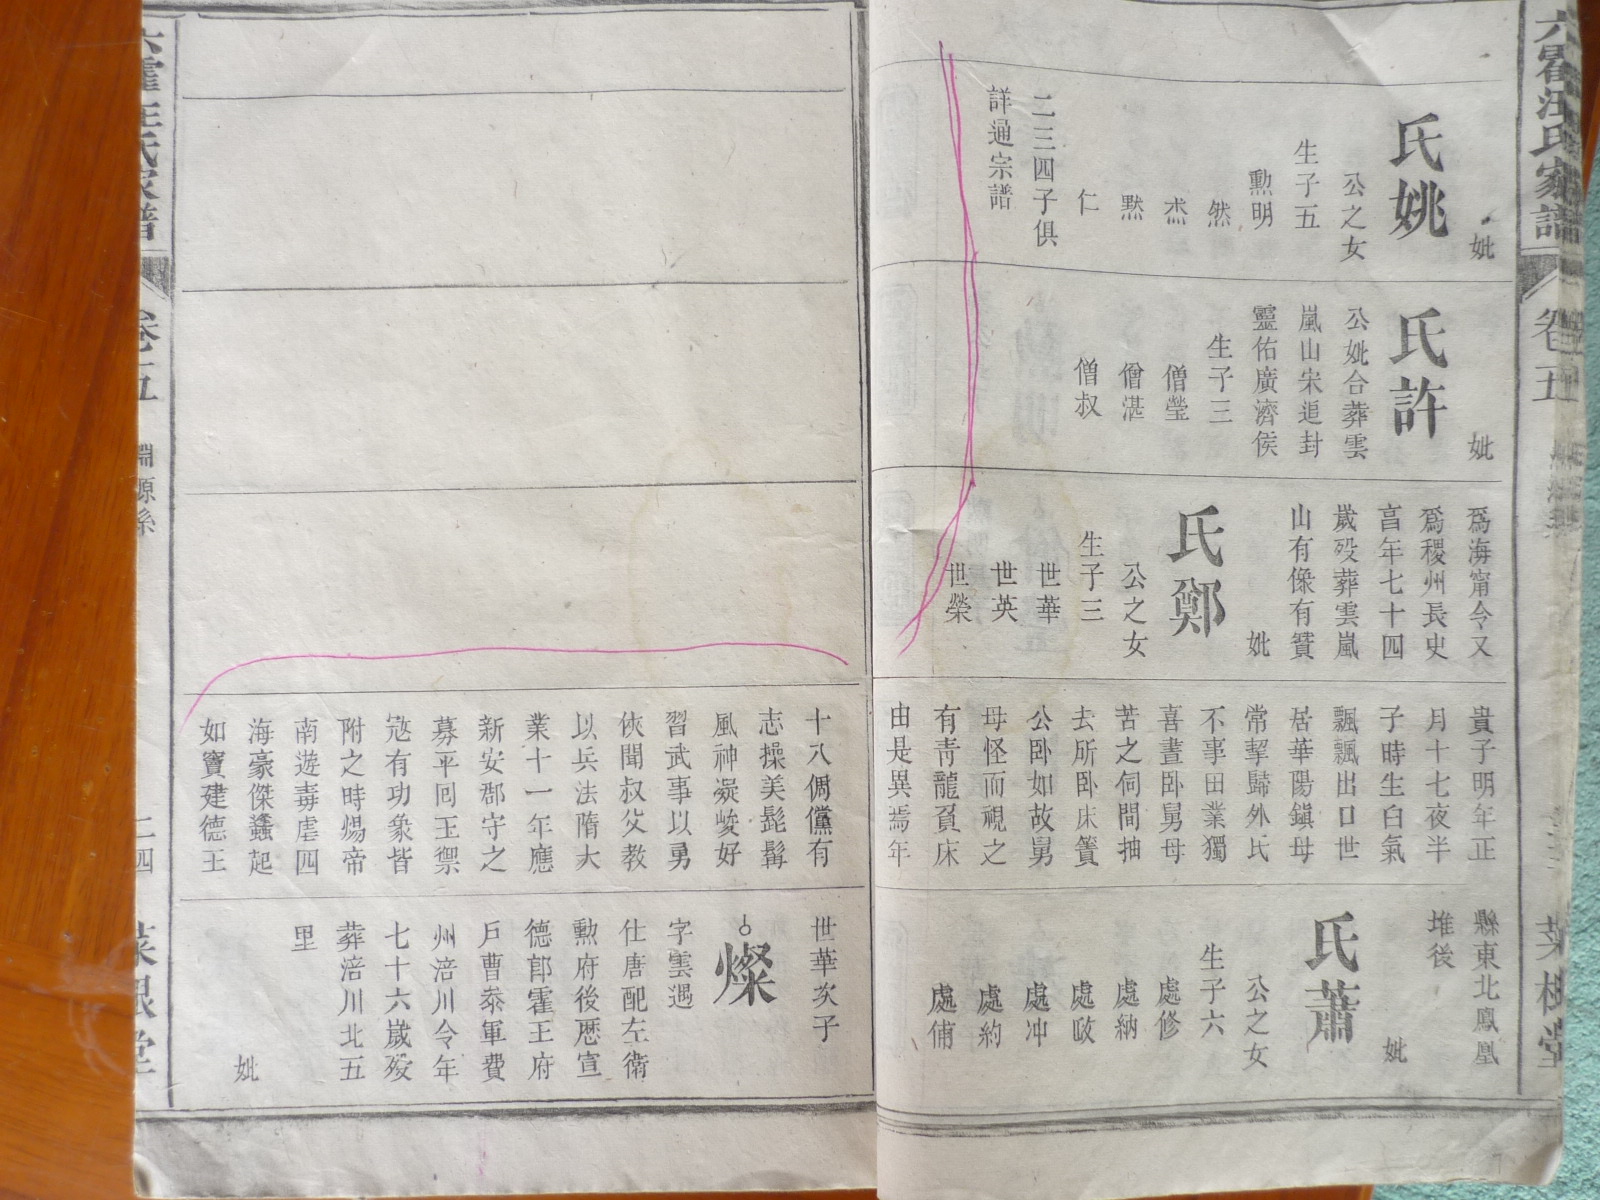 六霍汪氏家譜
卷五
菜根堂
妣
氏姚
公之女
生子五
勲明
然
𤇆
黙
仁
二三四子俱
詳通宗譜
妣
氏許
公妣合葬雲
嵐山宋追封
靈佑廣濟侯
生子三
僧瑩
僧湛
僧叔
爲海甯令又
爲稷州長史
亯年七十四
歲歿葬雲嵐
山有像有贊
妣
氏鄭
公之女
生子三
世華
世英
世榮
貴子明年正
月十七夜半
子時生白氣
飄飄出口世
居華陽鎮母
常挈歸外氏
不事田業獨
喜晝卧舅母
苦之伺間抽
去所卧床簀
公卧如故舅
母怪而視之
有青龍負床
由是異焉年
縣東北鳳凰
堆後
妣
氏蕭
公之女
生子六
處修
處納
處㕞
處冲
處約
處俌
十八倜儻有
志操美髭髯
風神凝峻好
習武事以勇
俠聞叔父教
以兵法隋大
業十一年應
新安郡守之
募平回玉禦
寇有功衆皆
附之時煬帝
南遊毒虐四
海豪傑蠭起
如竇建德王
世華次子
燦
字雲遇
仕唐配左衛
勲府後歴宣
德郎霍王府
戶曹叅軍費
州涪川令年
七十六歲歿
葬涪川北五
里
妣
六霍汪氏家譜
卷五
淵源系
二四
菜根堂